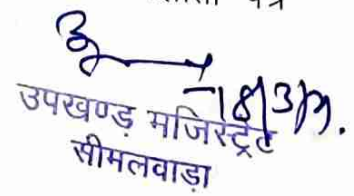 18/3/
उपखण्ड मजिस्ट्रेट
सीमलवाडा